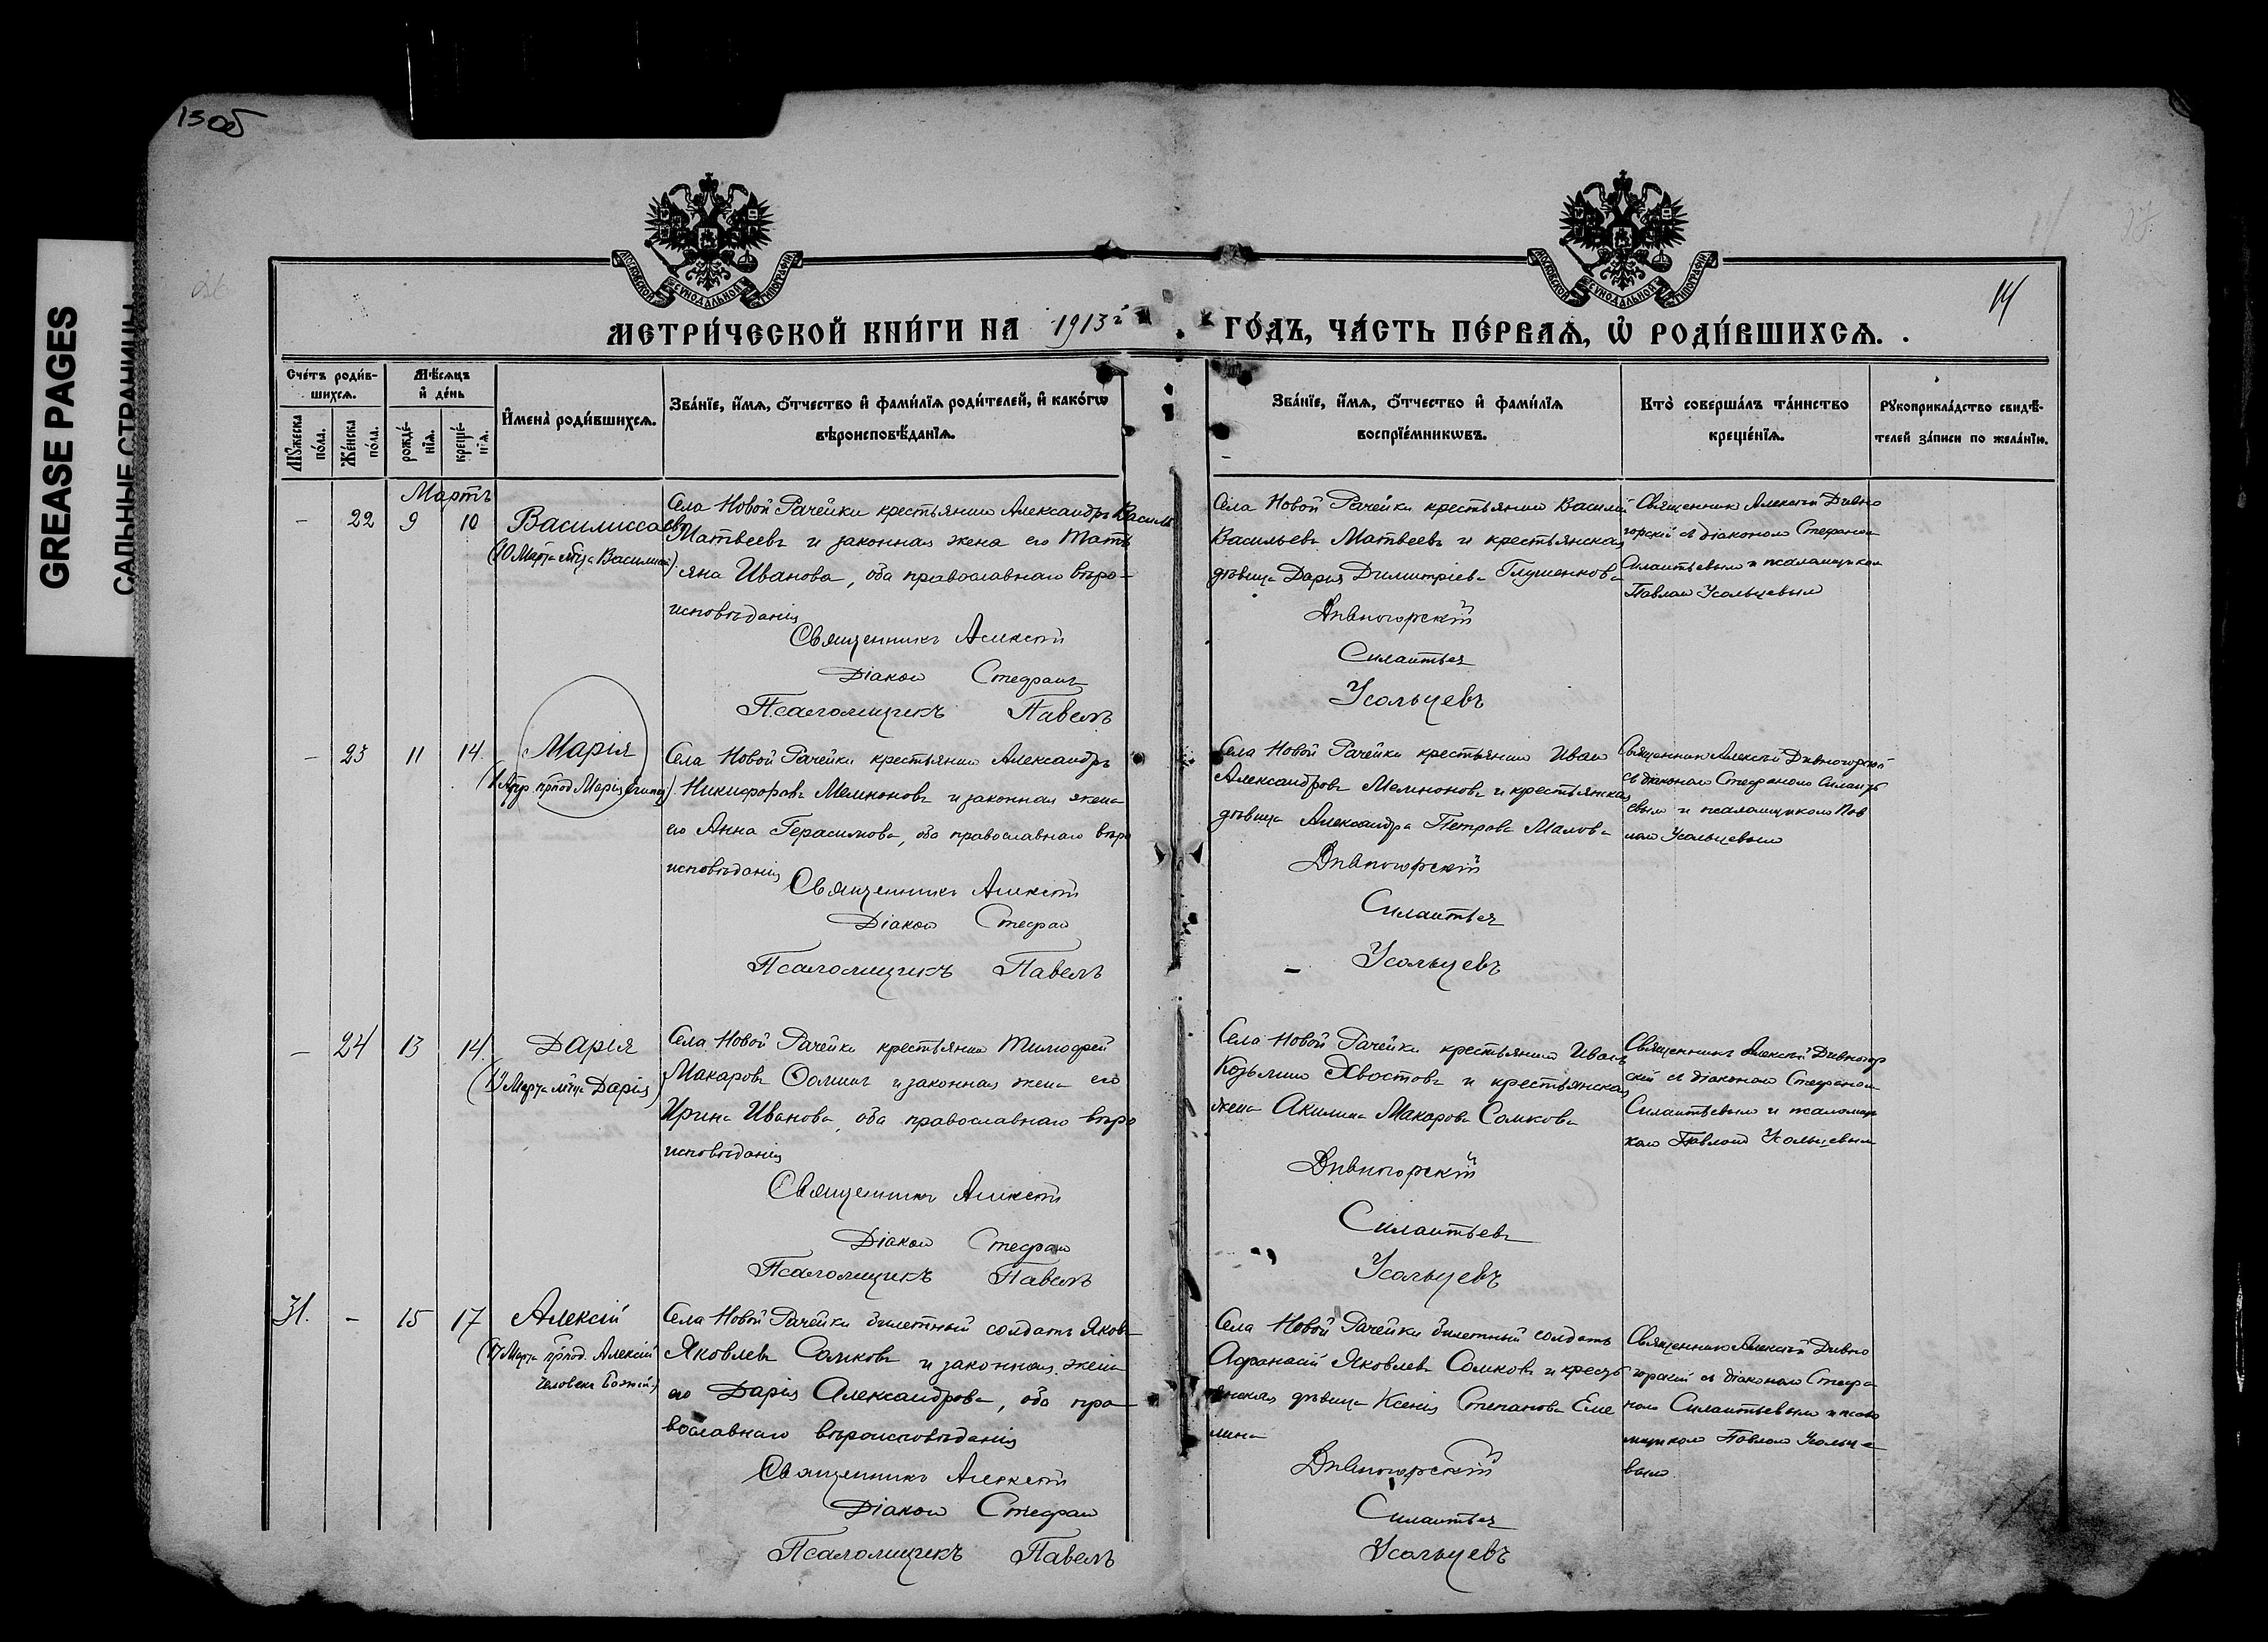 13 об
GREASE PAGES
САЛЬНЫЕ СТРАНИЦЫ
МОСКОВСКОЙ СѴНОДАЛЬНОЙ ТИПОГРАФІИ
МОСКОВСКОЙ СѴНОДАЛЬНОЙ ТИПОГРАФІИ
14
МЕТРИ́ЧЕСКОЙ КНИ́ГИ НА 1913й ГО́ДЪ, ЧА́СТЬ ПЕ́РВАѦ, Ѡ҆ РОДИ́ВШИХСѦ.
Сче́тъ роди́в-
шихсѧ.
Мꙋ́жеска по́ла.
Же́нска по́ла.
Мѣ́сѧцъ
и҆ де́нь
рожде́-
нїѧ.
креще́-
нїѧ.
И҆мена̀ роди́вшихсѧ.
Зва́нїе, и҆́мѧ, ѻ҆́тчество и҆ фами́лїѧ роди́телей, и҆ како́гѡ
вѣроисповѣ́данїѧ.
Зва́нїе, и҆́мѧ, ѻ҆́тчество и҆ фами́лїѧ
воспрїе́мникѡвъ.
Кто̀ соверша́лъ та́инство
креще́нїѧ.
Рꙋкоприкла́дство свидѣ́-
телей за́писи по жела́нїю.
Мартъ
– 22 9 10 Василисса
(10 Марта мц҃а Василисса)
Села Новой Рачейки крестьянин Александръ Василь
евъ Матвеевъ и законная жена его Тать
яна Иванова, оба православнаго вѣро-
исповѣданія
Священникъ Алексѣй
Діакон Стефанъ
Псаломщикъ Павелъ
Села Новой Рачейки крестьянин Василій
Васильевъ Матвеевъ и крестьянская
дѣвица Дарія Димитріева Глушенкова
Дивногорскій
Силантьев
Усольцевъ
Священник Алексѣй Дивно
горскій съ діаконом Стефаном
Силантьевым и псаломщиком
Павлом Усольцевым
– 23 11 14. Марія
(1 Апр. прпод. Марія Егип.)
Села Новой Рачейки крестьянин Александръ
Никифоровъ Мемноновъ и законная жена
его Анна Герасимова, оба православнаго вѣро
исповѣданія
Священникъ Алексѣй
Діакон Стефан
Псаломщикъ Павелъ
Села Новой Рачейки крестьянин Иван
Александровъ Мемноновъ и крестьянская
дѣвица Александра Петрова Малова
Дивногорскій
Силантьев
Усольцевъ
Священник Алексѣй Дивногорскій
съ діаконом Стефаном Силанть
евым и псаломщиком Пав
лом Усольцевым
– 24 13 14. Дарія
(19 Марта мц҃а Дарія)
Села Новой Рачейки крестьянин Тимофей
Макаровъ Фомин и законная жена его
Ирина Иванова, оба православнаго вѣро
исповѣданія
Священникъ Алексѣй
Діакон Стефан
Псаломщикъ Павелъ
Села Новой Рачейки крестьянин Иванъ
Козьмин Хвостовъ и крестьянская
жена Акилина Макарова Сомкова
Дивногорскій
Силантьевъ
Усольцевъ
Священникъ Алексѣй Дивногор
скій съ діаконом Стефаном
Силантьевым и псаломщи
ком Павлом Усольцевым
31. – 15 17 Алексій
(17 Марта прпод. Алексій
человека Божій)
Села Новой Рачейки билетный солдатъ Яковъ
Яковлевъ Сомковъ и законная жена
его Дарія Александрова, оба пра
вославнаго вѣроисповѣданія
Священникъ Алексѣй
Діакон Стефан
Псаломщикъ Павелъ
Села Новой Рачейки билетный солдатъ
Афанасій Яковлевъ Сомковъ и кресть
янская дѣвица Ксенія Степанова Еме
лина
Дивногорскій
Силантьев
Усольцевъ
Священник Алексѣй Дивно
горскій съ діаконом Стефа
ном Силантьевым и псало
мщиком Павлом Усольце
вым